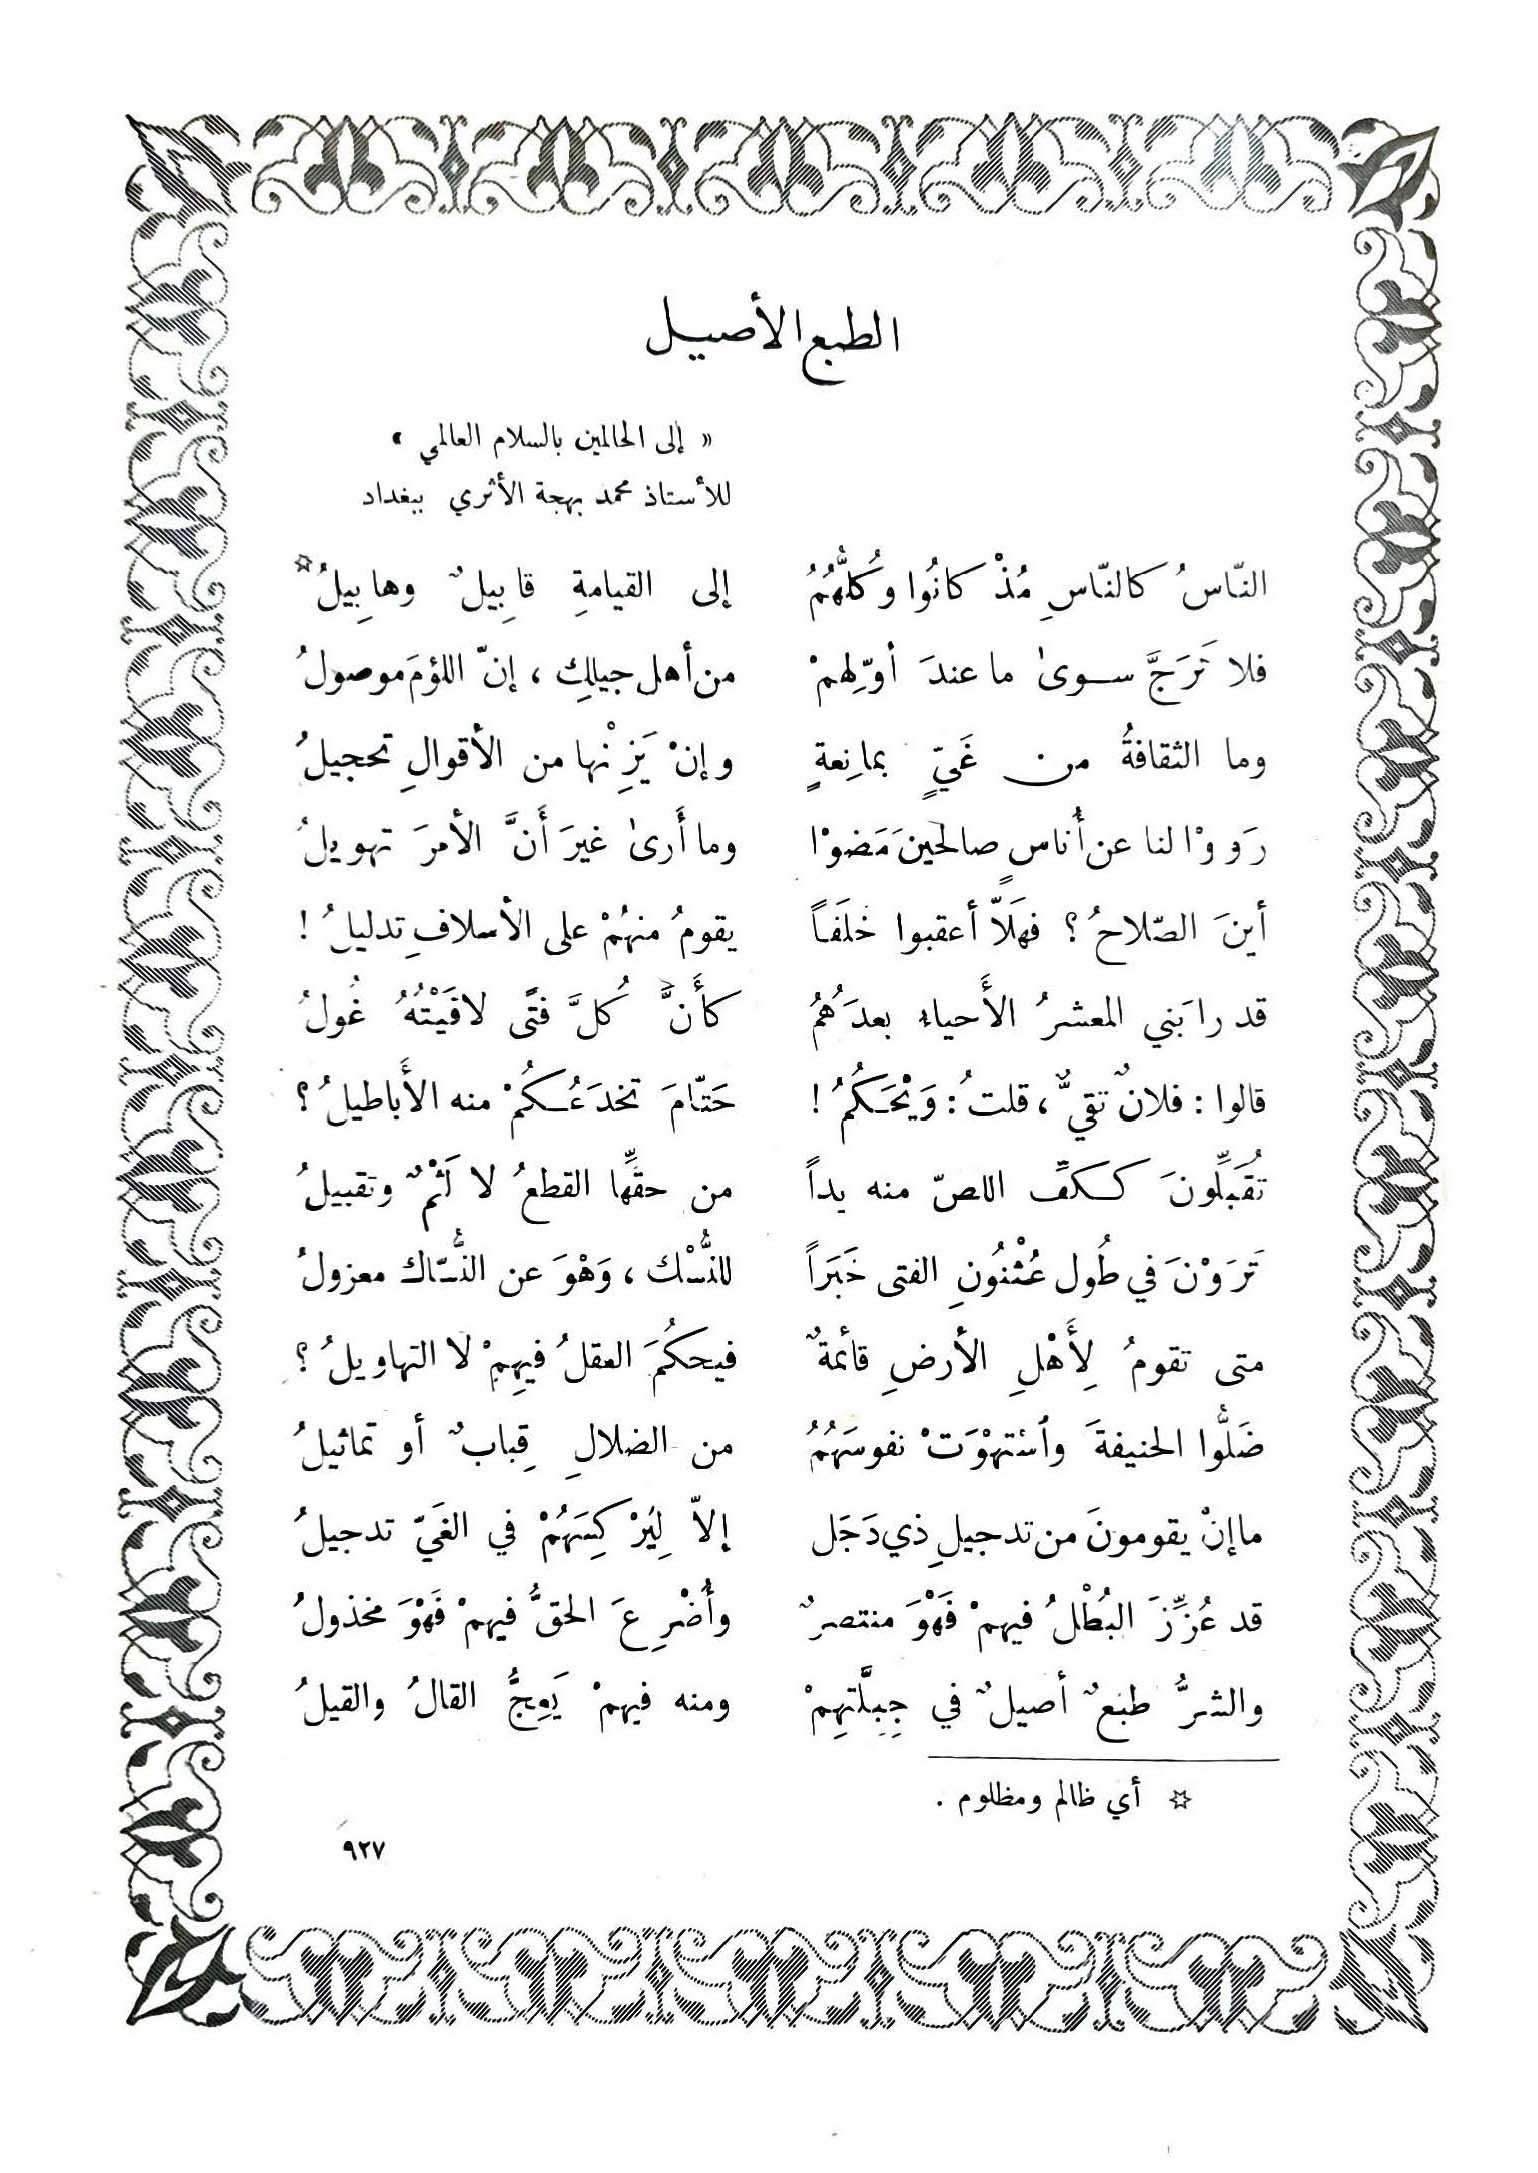 الطبع الأصيل
« إلى الحالمين بالسلام العالمي »
للأستاذ محمد بهجة الأثري ببغداد
النّاسُ كالنّاسِ مُذْ كانُوا وكُلُّهُمُ إلى القيامةِ قابيلٌ وهابِيلُ☆
فلا تَرَجَّ سوىٰ ما عندَ أوّلِهمْ من أهل جيلِك ، إنّ اللؤمَ موصولُ
وما الثقافةُ من غَيٍّ بمانِعةٍ وإنْ يَزِنْها من الأقوالِ تحجيلُ
رَوَوْا لنا عن أُناسٍ صالحينَ مَضوْا وما أَرىٰ غيرَ أَنَّ الأمرَ تهويلُ
أينَ الصّلاحُ ؟ فهَلاّ أعقبوا خَلَفاً يقومُ منهُمْ على الأسلافِ تدليلُ !
قد رابَني المعشرُ الأَحياء بعدَهُمُ كأَنَّ كُلَّ فتًى لاقَيْتُهُ غُولُ
قالوا : فلانٌ تقيٌّ ، قلتُ : وَيْحَكُمُ ! حَتّامَ تخدَعُكُمْ منه الأَباطيلُ ؟
تُقَبِّلُونَ ككفِّ اللصّ منه يداً من حقِّها القطعُ لا لَثْمٌ وتقبيلُ
تَرَوْنَ في طُول عُثْنُونِ الفتى خَبَراً للنُّسْك ، وَهْوَ عن النُّسّاك معزولُ
متى تقومُ لِأَهْلِ الأرضِ قائمةٌ فيحكُمَ العقلُ فيهِمْ لا التهاويلُ ؟
ضَلُّوا الحنيفةَ وٱسْتهْوَتْ نفوسَهُمُ من الضلالِ قِبابٌ أو تماثيلُ
ما إنْ يقومونَ من تدجيلِ ذي دَجَل إلاّ لِيُرْكِسَهُمْ في الغَيّ تدجيلُ
قد عُزِّزَ البُطْلُ فيهمْ فَهْوَ منتصرٌ وأُضْرِعَ الحقُّ فيهمْ فَهْوَ مخذولُ
والشرُّ طبْعٌ أصيلٌ في جِبِلَّتهِمْ ومنه فيهمْ يَعِجُّ القالُ والقيلُ
☆ أي ظالم ومظلوم .
٩٢٧